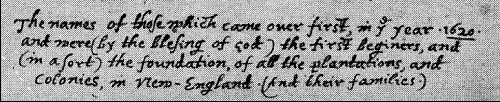 The names of those which came over first, in yͤ year .1620.
and were (by the blesing of God) the first beginers, and
(in a sort) the foundation, of all the plantations, and
Colonies, in New-England. (And their families)